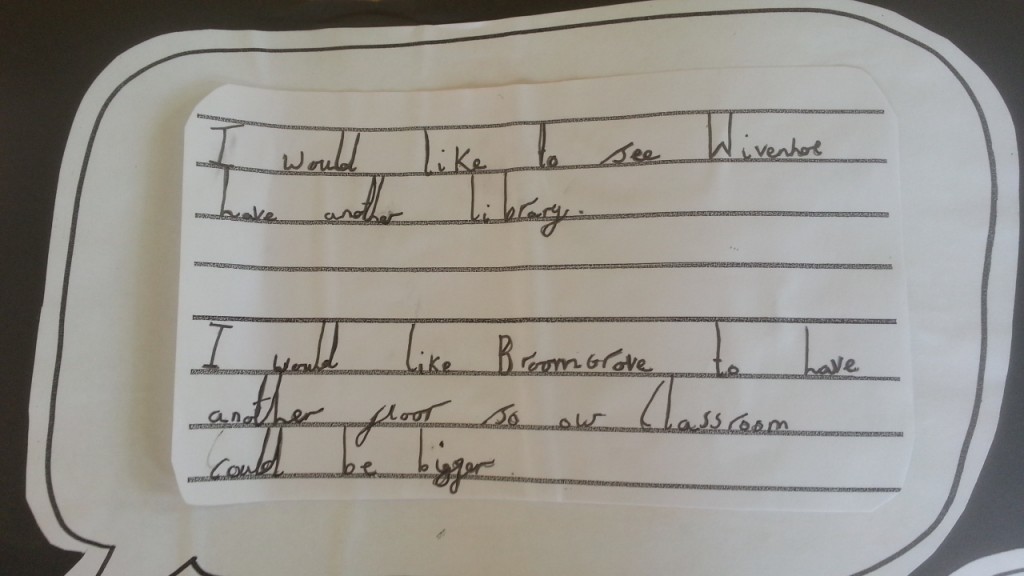 I would like to see Wivenhoe
have another library.
I would like Broomgrove to have
another floor so our Classroom
could be bigger.